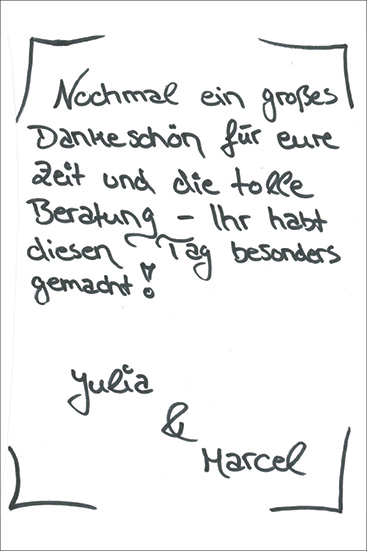 Nochmal ein großes
Dankeschön für eure
Zeit und die tolle
Beratung – Ihr habt
diesen Tag besonders
gemacht!
Yulia
&
Marcel